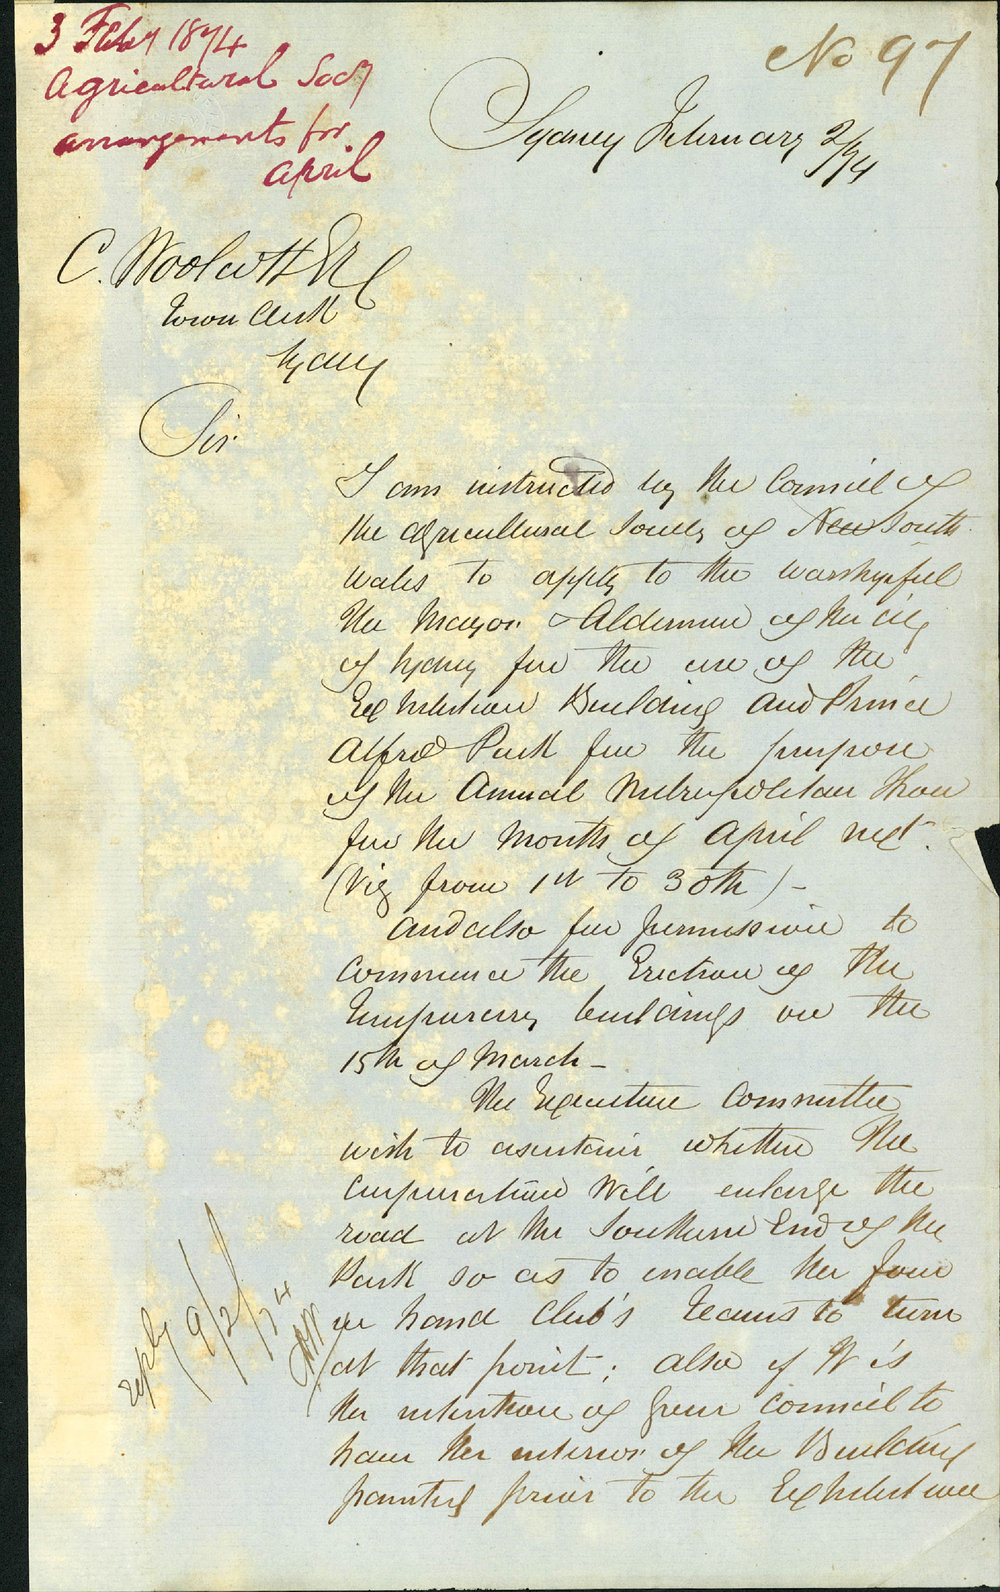 3 Feby 1874
Agricultural Socy
arrangements for
April
No 97
Sydney February 2/74
C. Woolcott Esq
Town Clerk
Sydney
Sir
I am instructed by the Council of
the Agricultural Society of New South
Wales to apply to the Worshipful
the Mayor & Aldermen of the City
of Sydney for the use of the
Exhibition Building and Prince
Alfred Park for the purpose
of the Annual Metropolitan Show
for the Month of April next.
(Viz from 1st to 30th) -
And also for permission to
Commence the Erection of the
Temporary buildings on the
15th of March -
The Executive Committee
wish to ascertain whether the
Corporation Will enlarge the
road at the Southern End of the
Park so as to enable the four
in hand Club's teams to turn
at that point; also if It is
the intention of your Council to
have the interior of the Building
painted prior to the Exhibition
reply 9/2/74